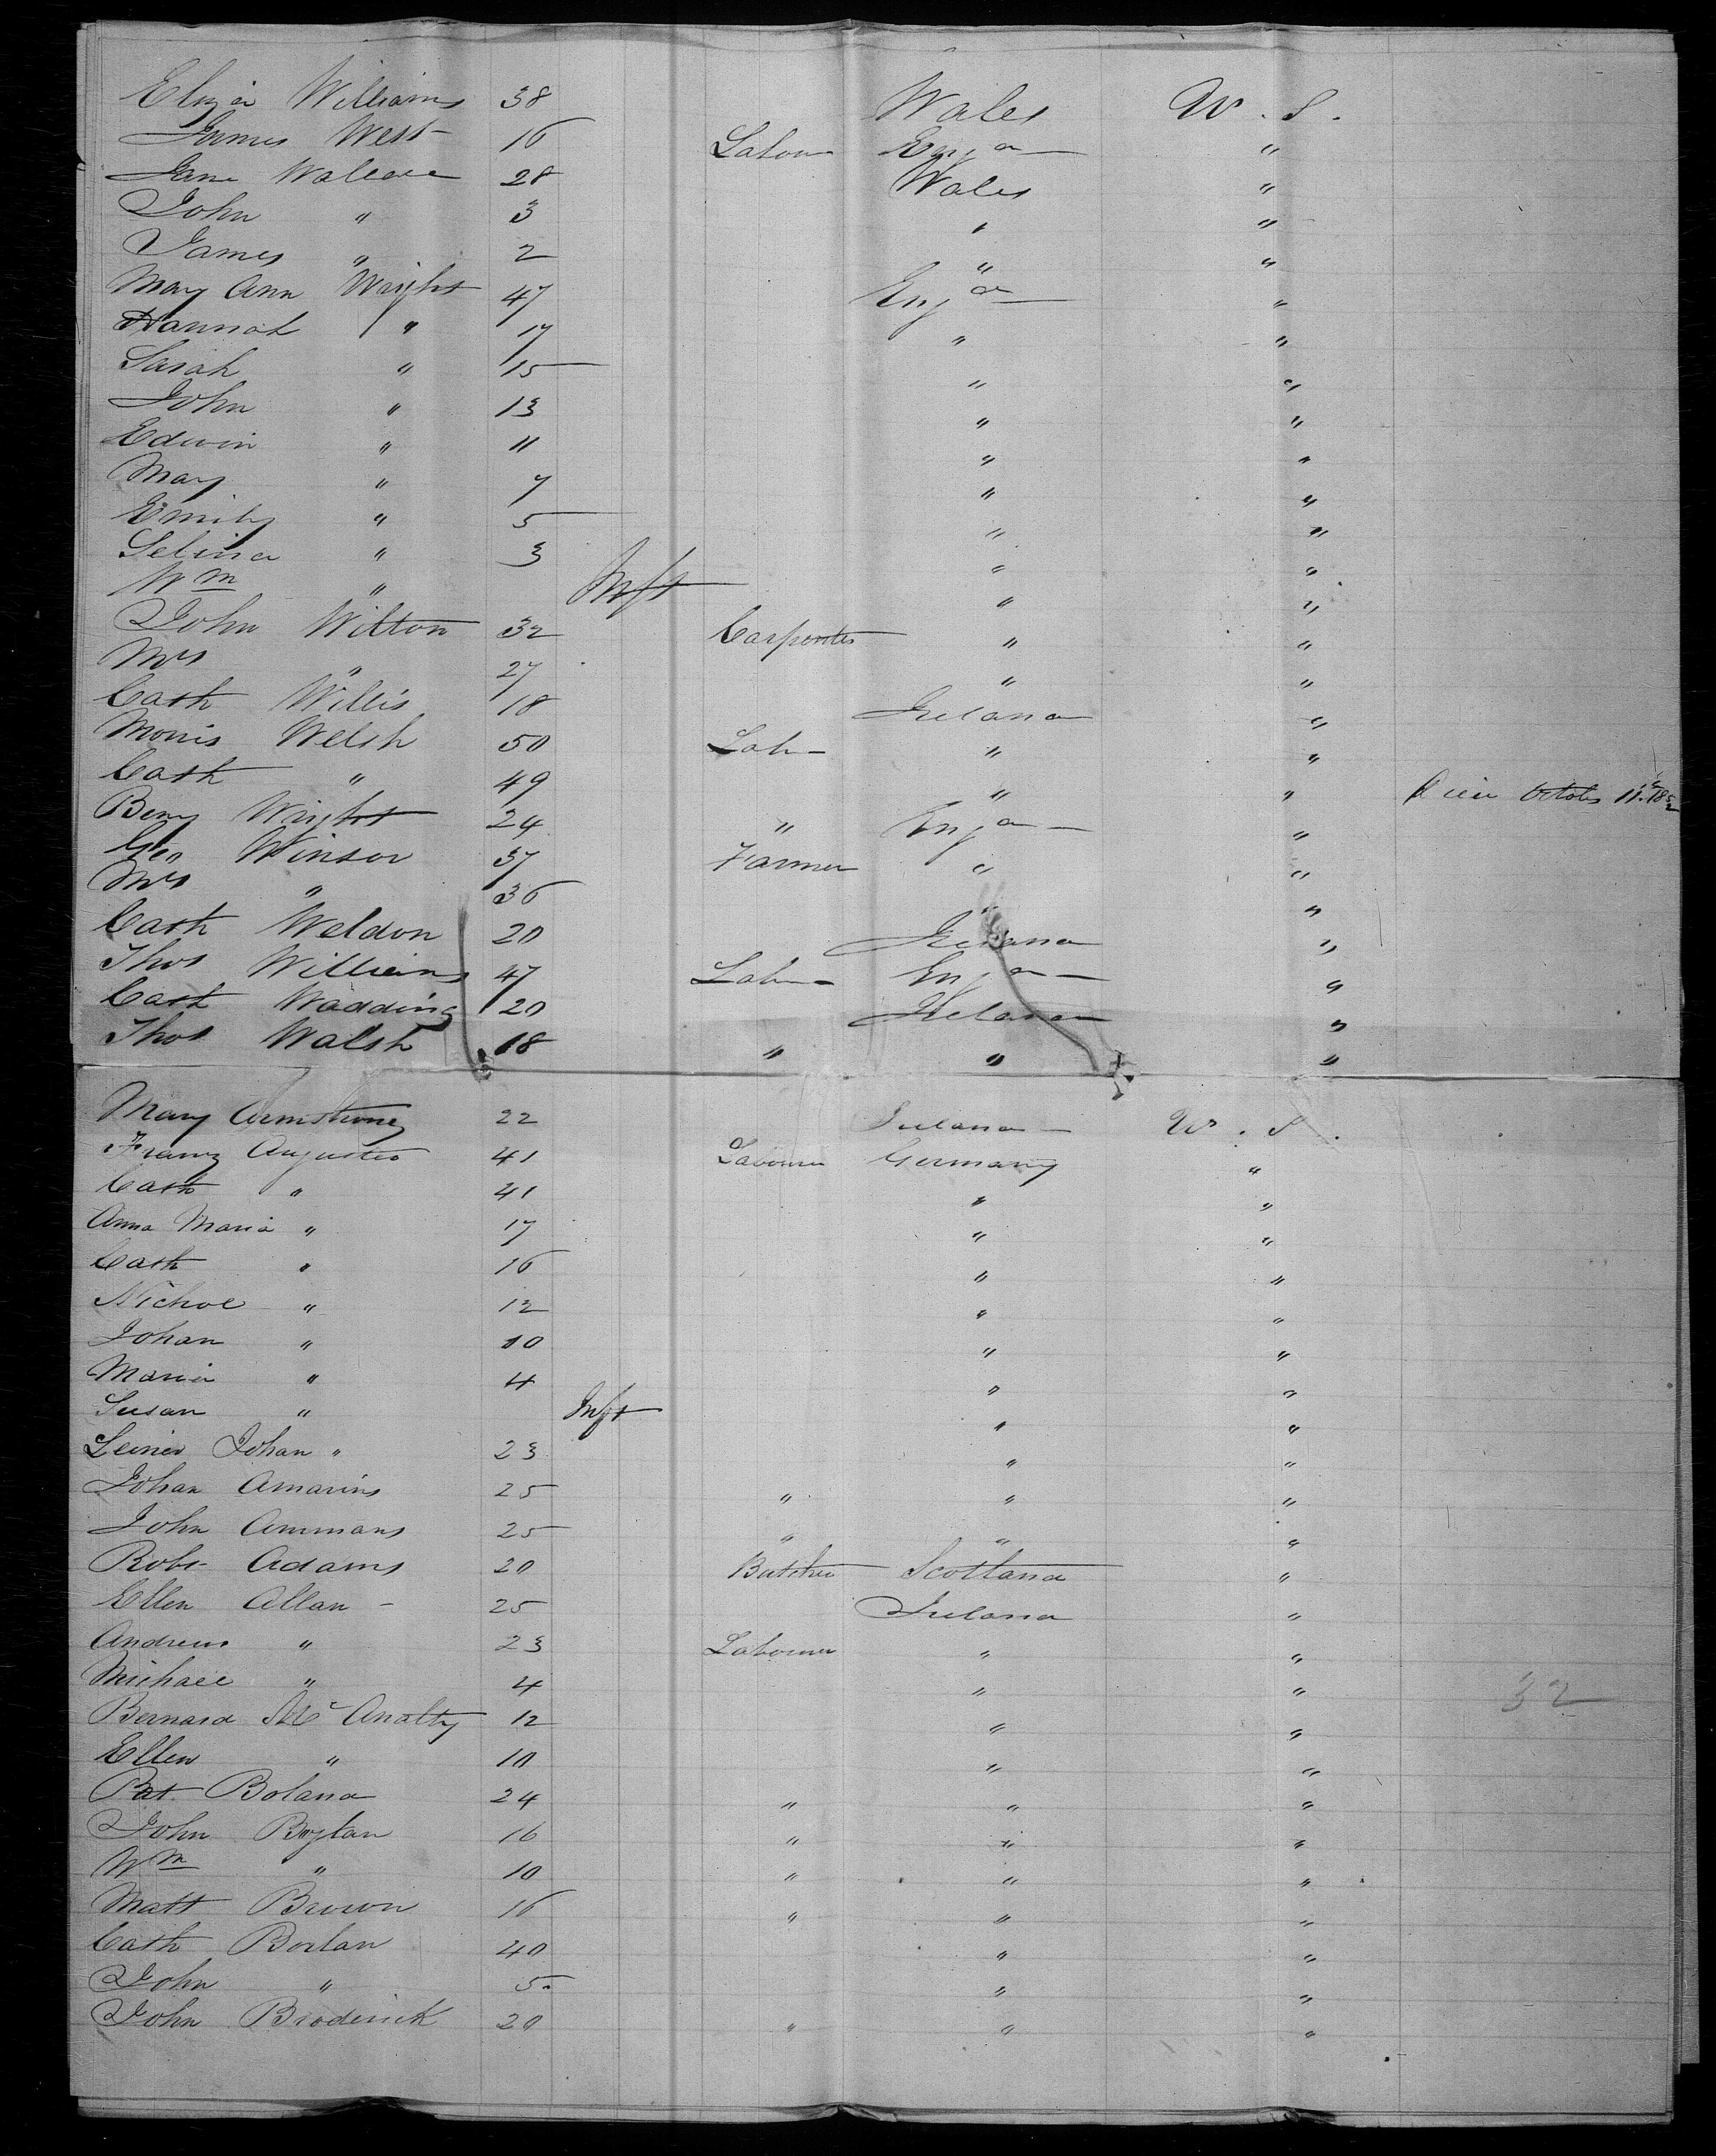 Eliza Williams 38 Wales U. S.
James West 16 Labour Engd "
Jane Wallace 28 Wales "
John " 3 " "
James " 2 " "
Mary Ann Wright 47 Engd "
Hannah " 17 " "
Sarah " 15 " "
John " 13 " "
Edwin " 11 " "
Mary " 7 " "
Emily " 5 " "
Selina " 3 " "
Wm " Inft " "
John Wilton 32 Carpenter " "
Mrs " 27 " "
Cath Willis 18 Ireland "
Morris Welsh 50 Lab " "
Cath " 49 " " Died October 11th 1852
Benj Wright 24 " Engd "
Geo Winsor 37 Farmer " "
Mrs " 36 " "
Cath Weldon 20 Ireland "
Thos Williams 47 Lab Engd "
Cath Wadding 20 Ireland "
Thos Walsh 18 " " "
Mary Armstrong 22 Ireland U. S.
Franz Augustes 41 Labourer Germany "
Cath " 41 " "
Anna Maria " 17 " "
Cath " 16 " "
Nichol " 12 " "
Johan " 10 " "
Maria " 4 " "
Susan " Inft " "
Johan " 23 " "
Johan Amarins 25 " " "
John Ammans 25 " " "
Robt Adams 20 Butcher Scotland "
Ellen Allan 25 Ireland "
Andrew " 23 Labourer " "
Michael " 4 " "
Bernard Mc Analty 12 " "
Ellen " 10 " "
Pat Boland 24 " " "
John Boylan 16 " " "
Wm " 10 " " "
Matt Brown 16 " " "
Cath Borlan 40 " "
John " 5 " "
John Broderick 20 " " "
32